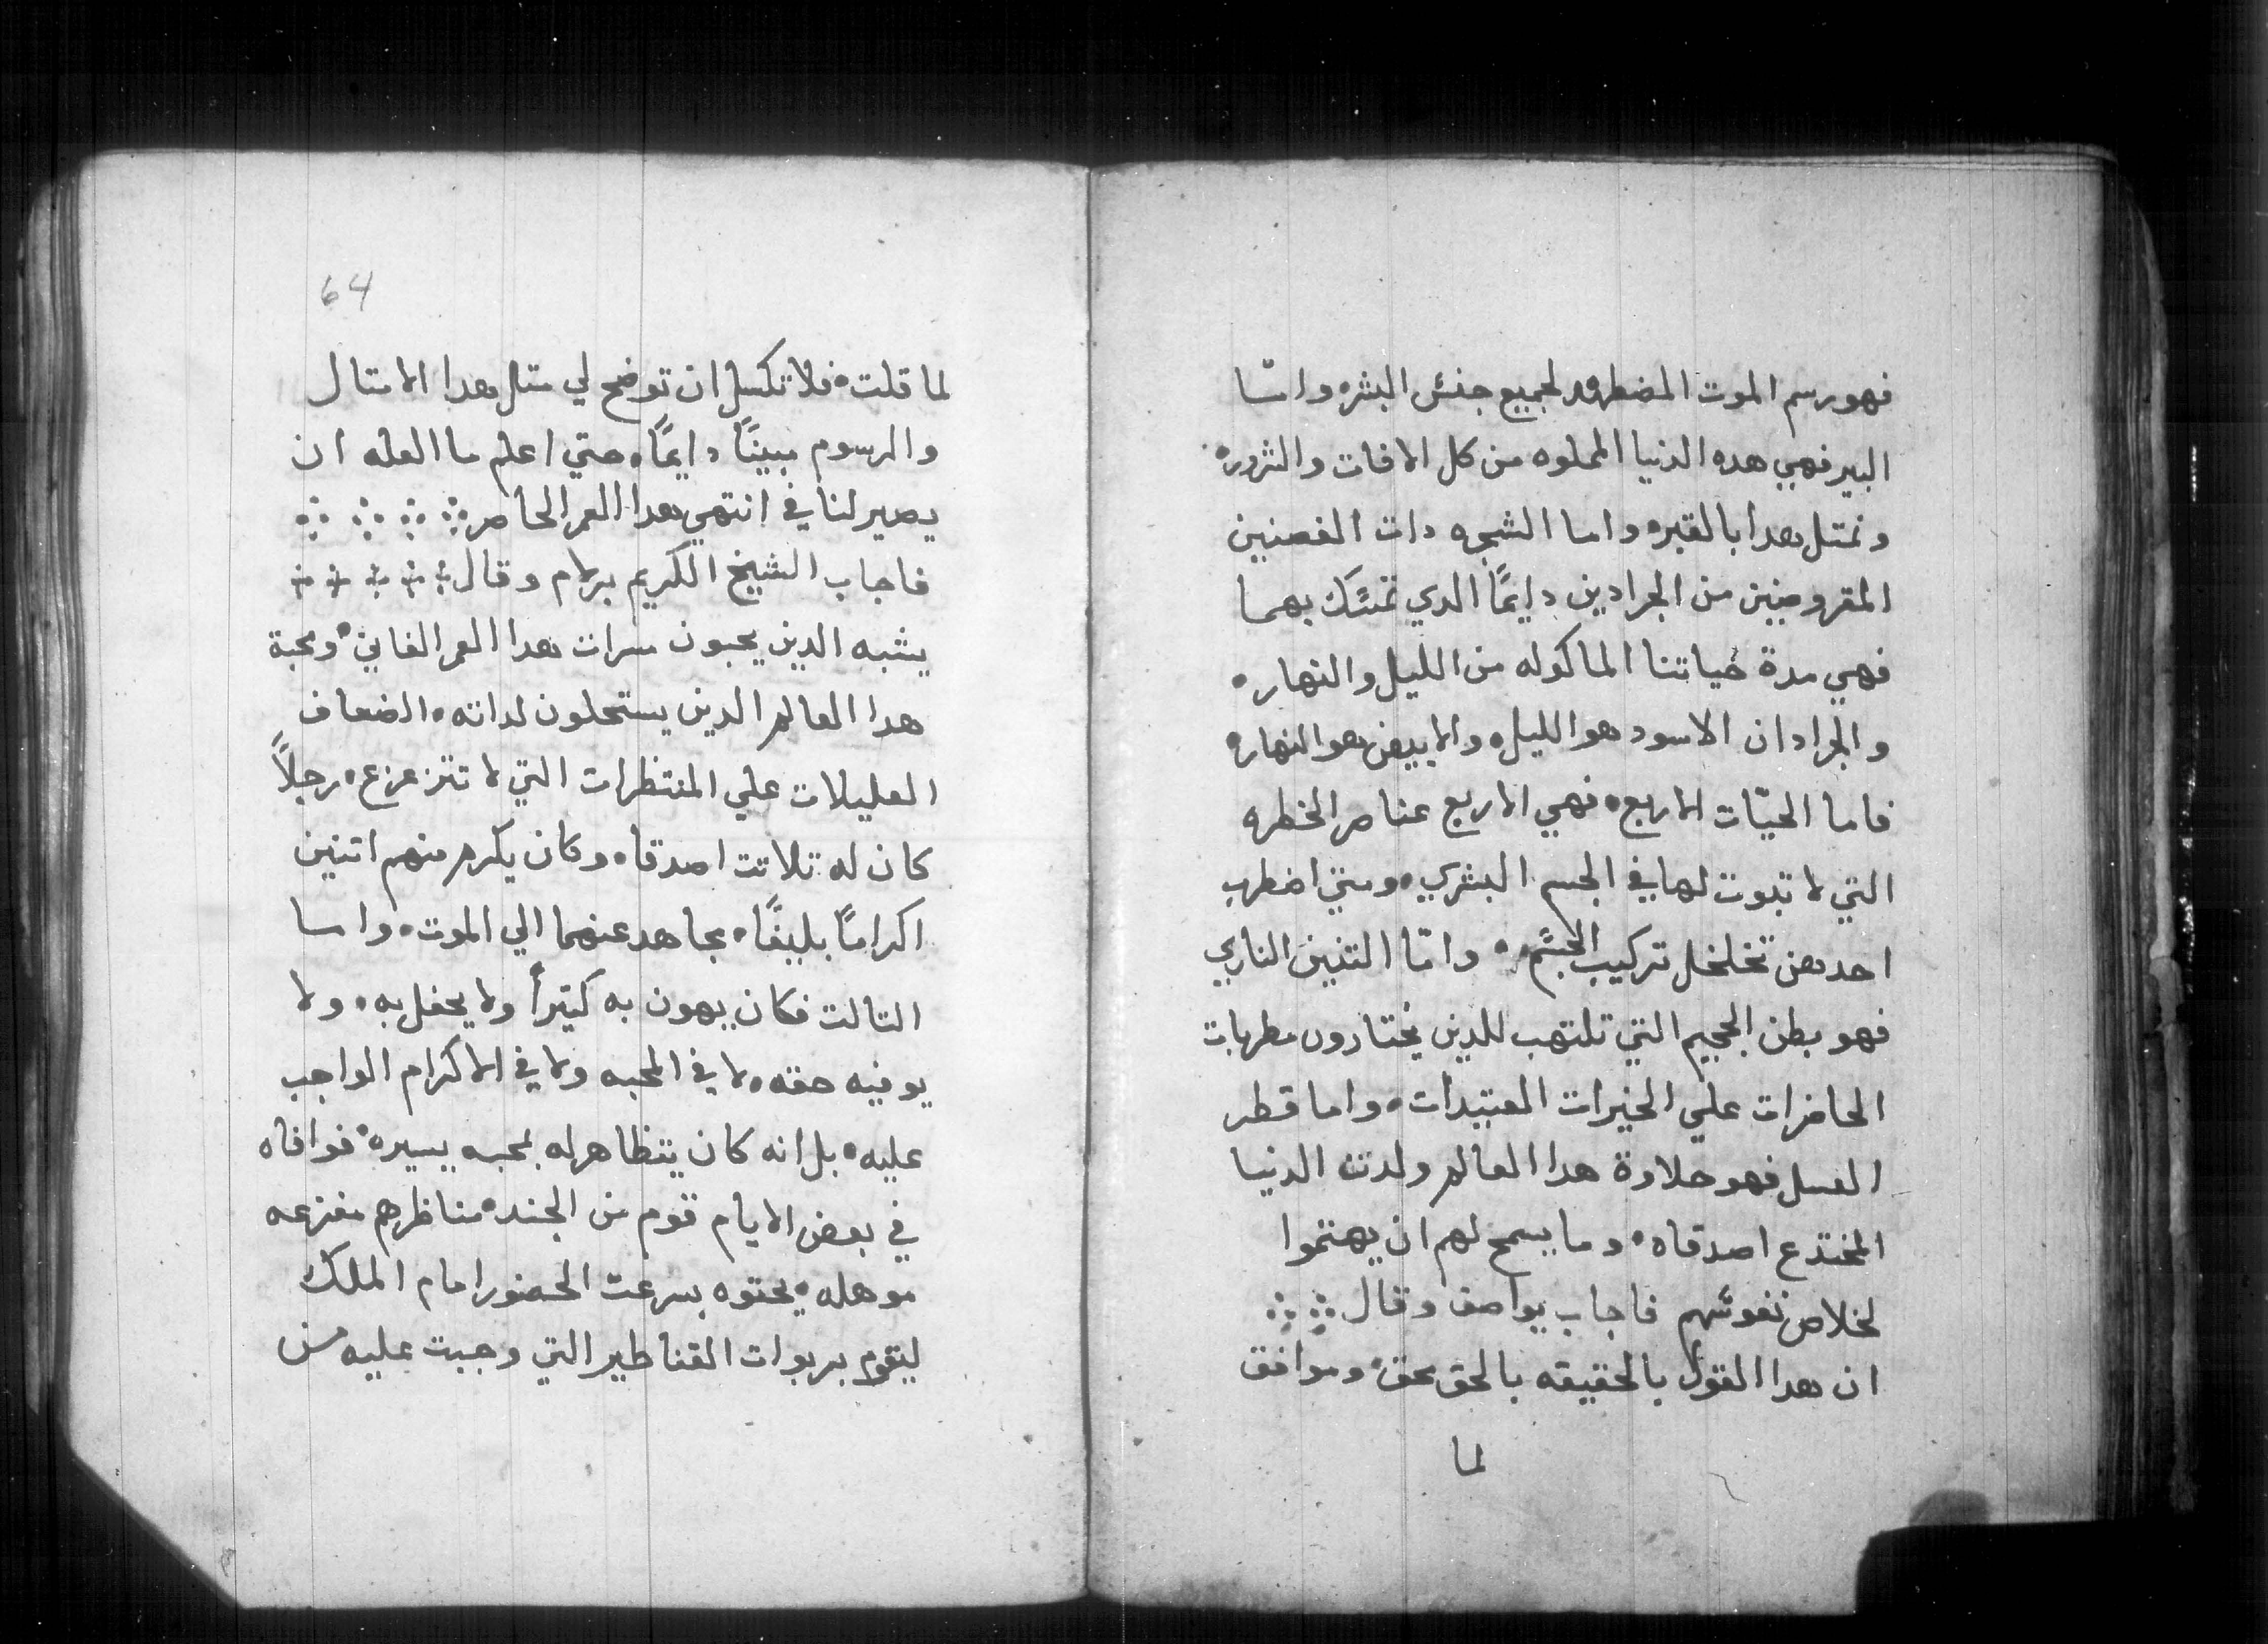 فهو رسم الموت المضطهد لجميع جنس البشر۰ واما
البير فهي هده الدنيا المملوه من كل الافات والشرور۰
ونمتل هدا بالقبر۰ واما الشجره دات الغصنين
المقروضين من الجرادين دايمًا الدي تمسك بهما
فهي مدة حياتنا الماكوله من الليل والنهار۰
والجرادان الاسود هو الليل۰ والابيض هو النهار۰
فاما الحيّات الاربع۰ فهي الاربع عناصر الخطره
التي لا تبوت لها في الجسم البشري۰ ومتي اضطرب
احدهن تخلخل تركيب الجسم۰ وامّا التنين الناري
فهو بطن الجحيم التي تلتهب للدين يختارون مطربات
الحاضرات علي الخيرات المعتيدات۰ واما قطر
العسل فهو حلاوة هدا العالم ولدت الدنيا
المختدع اصدقاه۰ وما يسمح لهم ان يهتموا
لخلاص نفوسهم فاجاب يواصف وقال
ان هدا القول بالحقيقه بالحق محق۰ وموافق
لما
64
لما قلت۰ فلا تكسل ان توضح لي متل هدا الامتال
والرسوم مبينًا دايمًا۰ حتي اعلم ما العله ان
يصير لنا في انتهي هدا العمر الحاضر
فاجاب الشيخ الكريم برلام وقال
يشبه الدين يحبون مسرات هدا العمر الفاني۰ ومحبة
هدا العالم الدين يستحلون لداته۰ الضعاف
العليلات علي المنتظرات التي لا تتزعزع۰ رجلاً
كان له تلاتت اصدقاه۰ وكان يكرم منهم اتنين
اكرامًا بليغًا۰ يجاهد عنهما الي الموت۰ واما
التالت فكان يهون به كتيرأ ولا يحفل به۰ ولا
يوفيه حقه۰ لا في المحبه ولا في الاكرام الواجب
عليه۰ بل انه كان يتظاهر له بمحبه يسيره۰ فوافاه
في بعض الايام قوم من الجند۰ مناظرهم مفزعه
موهله۰ يحتوه بسرعت الحضور امام الملك
ليقوم بربوات القناطير التي وجبت عليه من